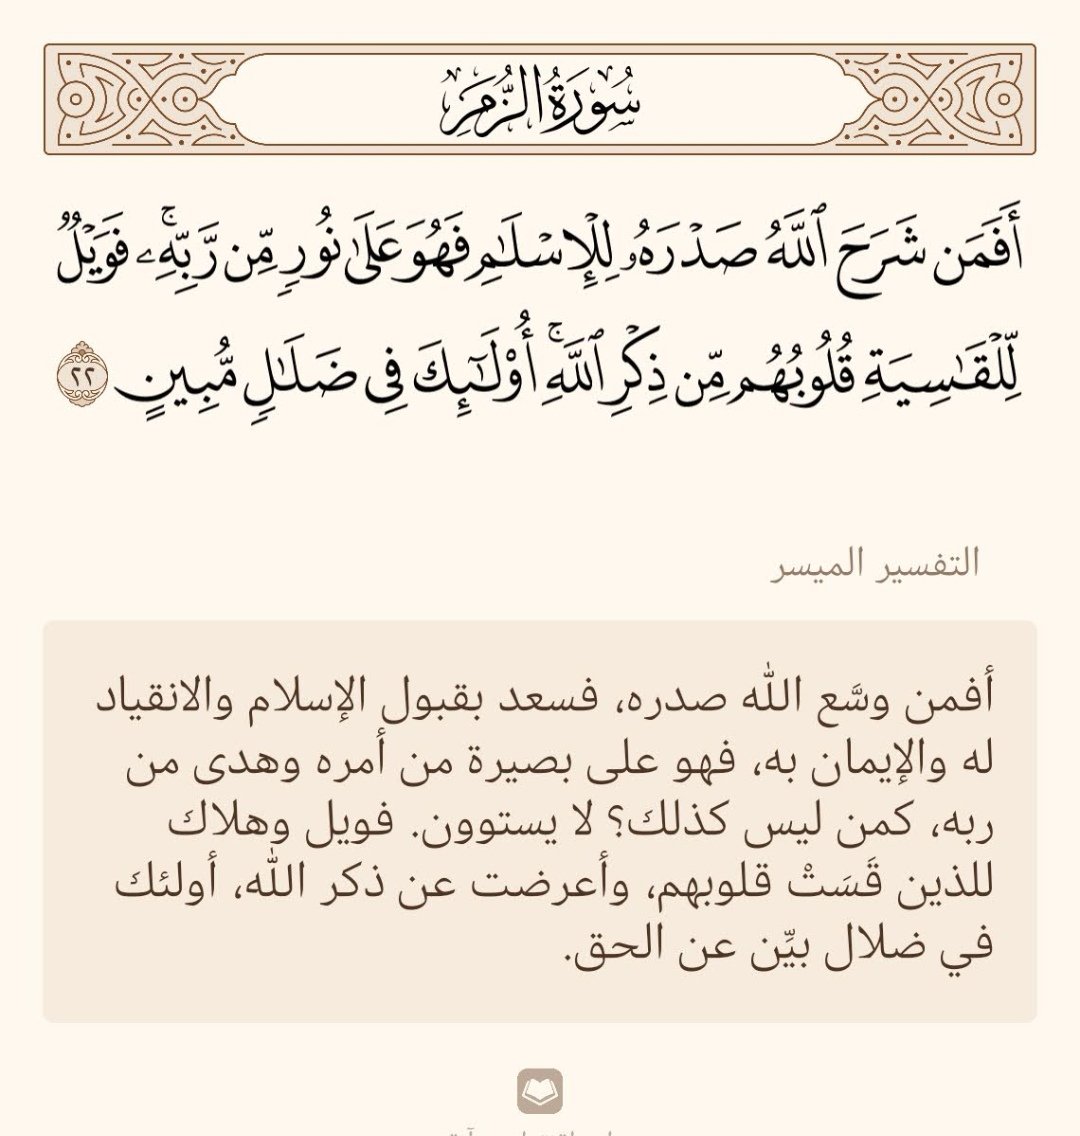 سُورَةُ الزُّمَرِ
أَفَمَن شَرَحَ ٱللَّهُ صَدۡرَهُۥ لِلۡإِسۡلَٰمِ فَهُوَ عَلَىٰ نُورٖ مِّن رَّبِّهِۦۚ فَوَيۡلٞ
لِّلۡقَٰسِيَةِ قُلُوبُهُم مِّن ذِكۡرِ ٱللَّهِۚ أُوْلَٰٓئِكَ فِي ضَلَٰلٖ مُّبِينٍ ٢٢
التفسير الميسر
أفمن وسَّع الله صدره، فسعد بقبول الإسلام والانقياد
له والإيمان به، فهو على بصيرة من أمره وهدى من
ربه، كمن ليس كذلك؟ لا يستوون. فويل وهلاك
للذين قَسَتْ قلوبهم، وأعرضت عن ذكر الله، أولئك
في ضلال بيِّن عن الحق.